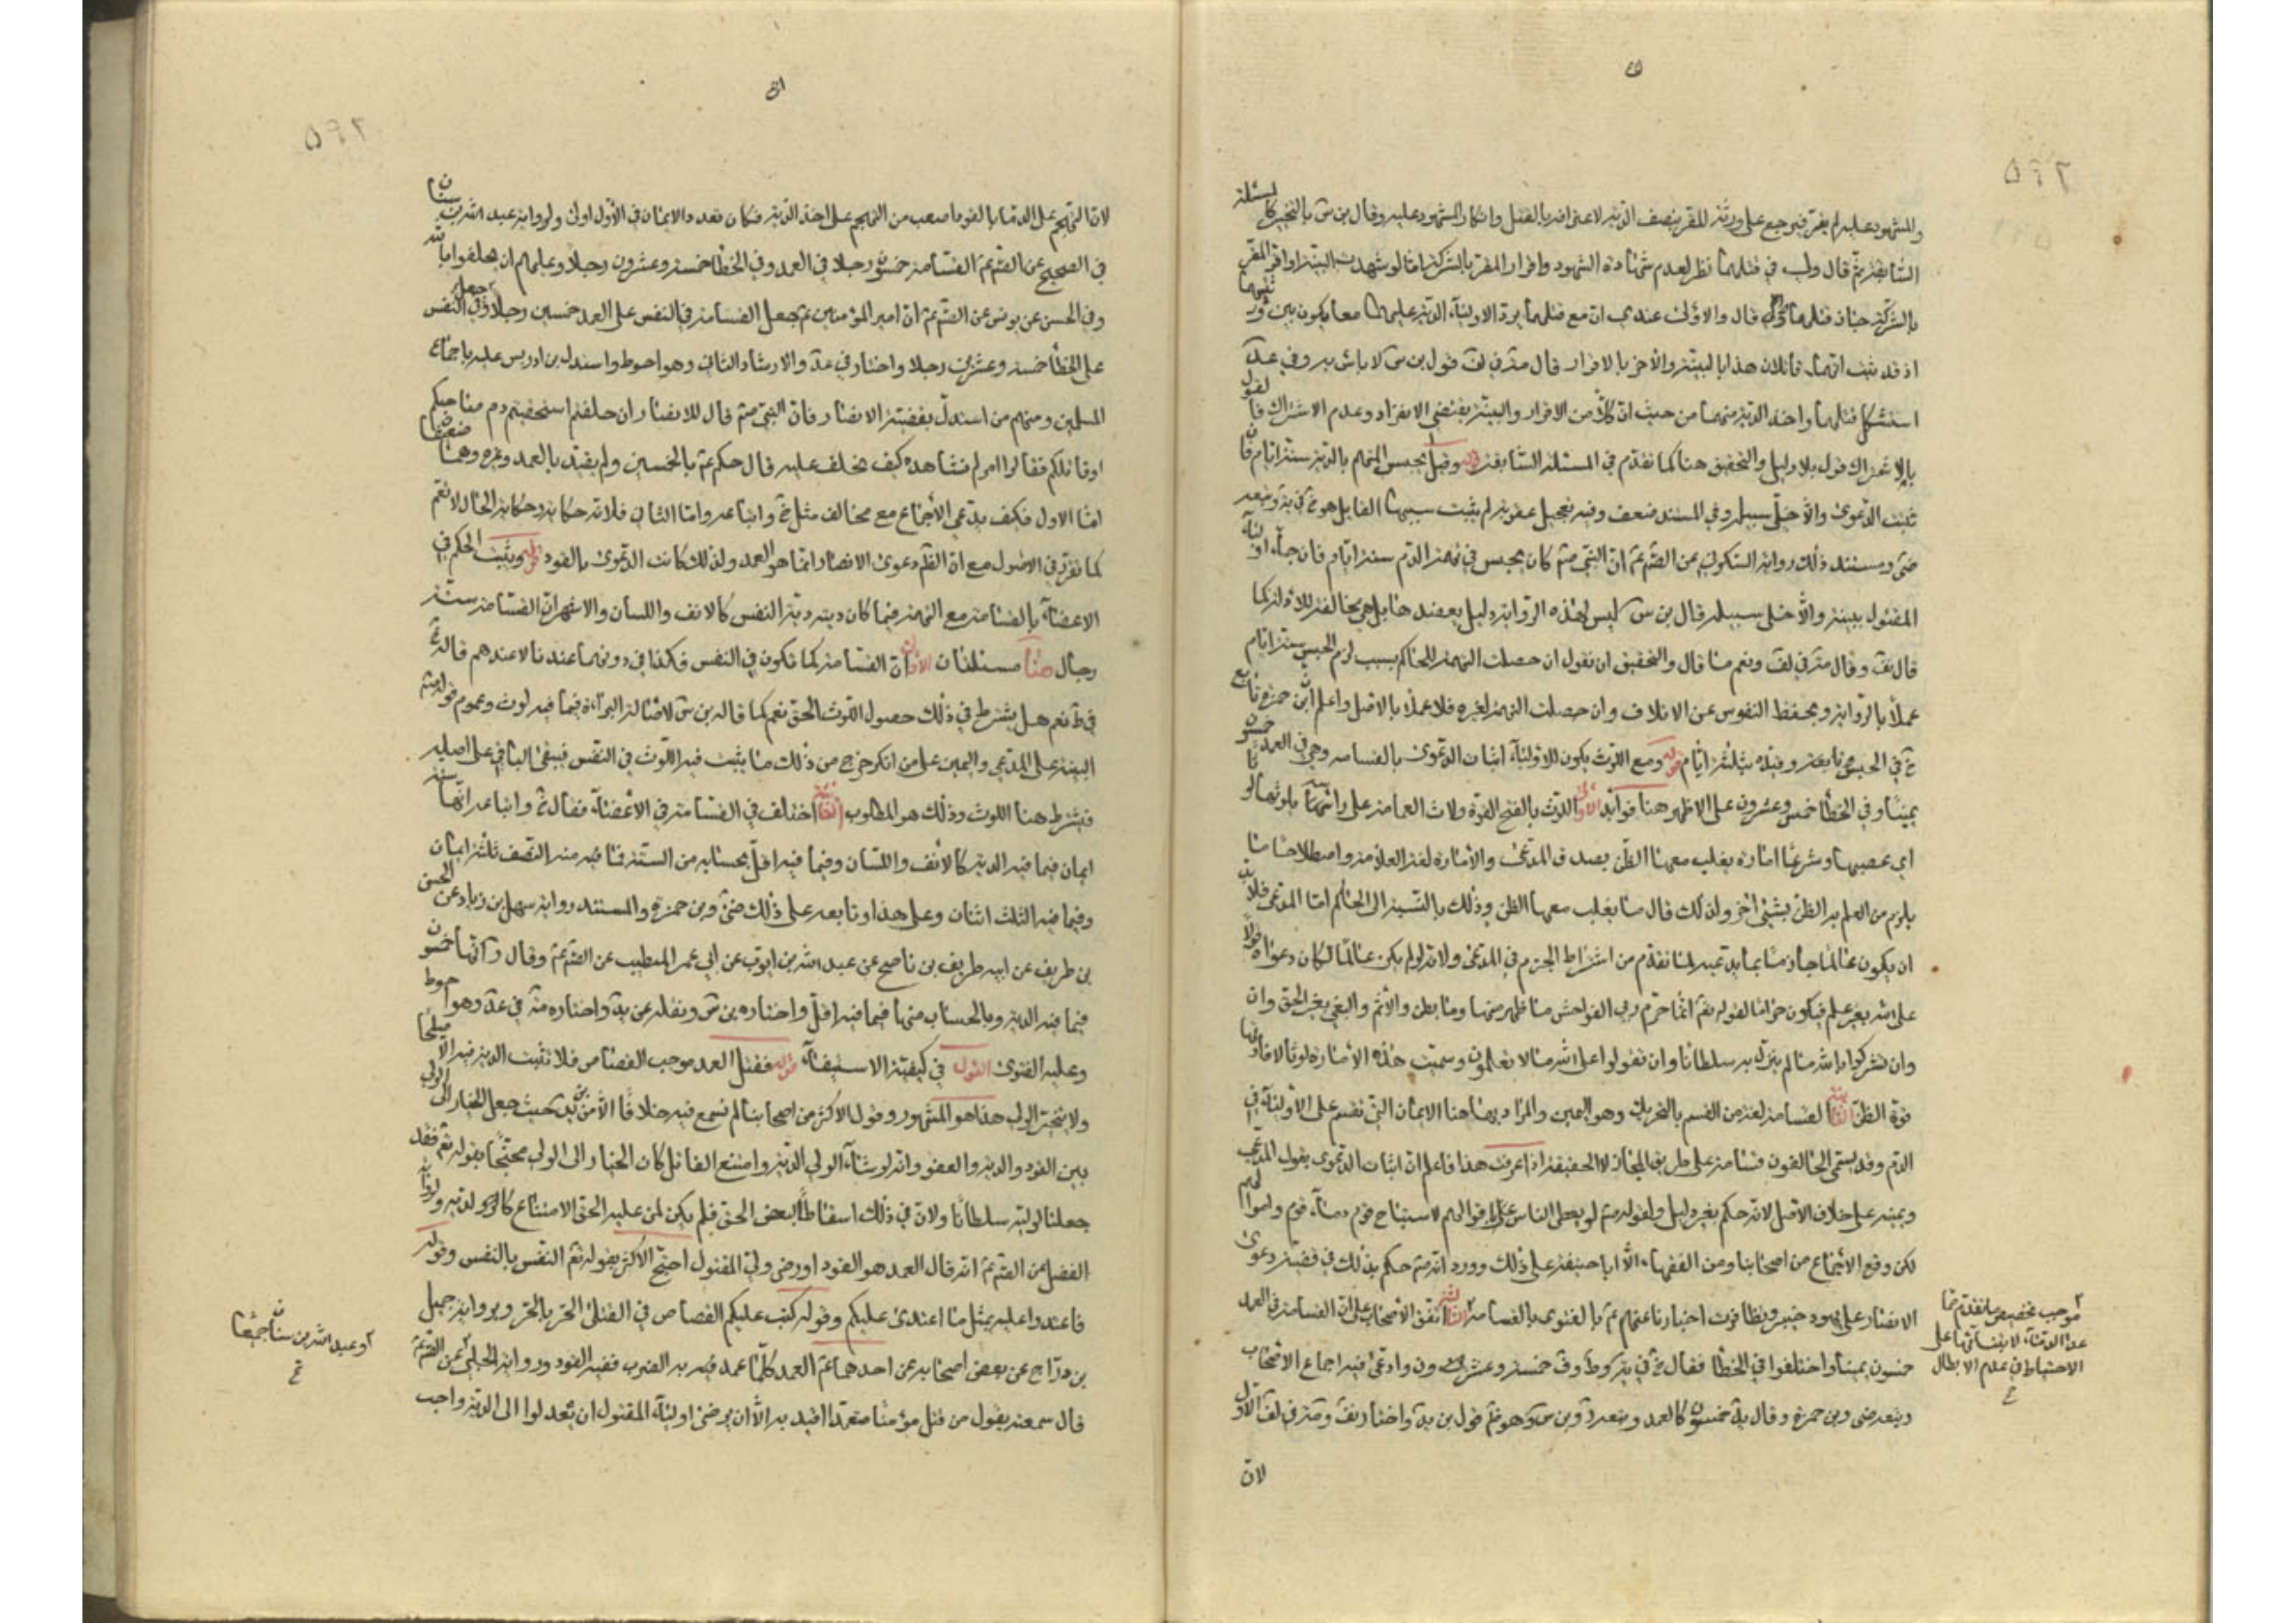 والمشهود عليه لم يقر فيرجع على ورثة المقر بنصف الدية لاعترافه بالقتل وانكار المشهود عليه وقال بن س بالتخيير كالمسئلة
السابقة ثم قال ولى في قتلهما نظر لعدم شهادة الشهود واقرار المقر بالشركة اما لو شهدت البينة او اقر المقر
بالشركة جاز قتلهما قال والاولى عندي ان مع قتلهما يرد الاولياء الدية عليهما معا يكون بين ورثتهما
اذ قد ثبت انهما قاتلان هذا بالبينة والآخر بالاقرار قال مة في لف قول بن س لا باس به وفي عد
استشكل قتلهما واخذ الدية منهما من حيث ان كلا من الاقرار والبينة يقتضي الانفراد وعدم الاشتراك فالقول
بالاشتراك قول بلا دليل والتحقيق هنا كما تقدم في المسئلة السابقة قوله وقيل يحبس المتهم بالدم ستة ايام فان
ثبتت الدعوى والا خلى سبيله وفي المستند ضعف وفيه تعجيل عقوبة لم يثبت سببها القايل هو خ في ية وتبعه
ضى ومستند ذلك رواية السكوني عن الصم عم ان النبي صم كان يحبس في تهمة الدم ستة ايام فان جاء اولياء
المقتول ببينة والا خلى سبيله قال بن س ليس لهذه الرواية دليل يعضدها بل هي مخالفة للادلة كما
قال بف وقال مة في لف ونعم ما قال والتحقيق ان نقول ان حصلت التهمة للحاكم بسبب لزم الحبس ستة ايام
عملا بالرواية وبحفظ النفوس عن الاتلاف وان حصلت التهمة لغيره فلا عملا بالاصل واعلم ان بن حمزة تابع
خ في الحبس تابعه وقيده بثلثة ايام قوله ومع اللوث يكون للاولياء اثبات الدعوى بالقسامه وهي في العمد خمسون
يمينا وفي الخطأ خمس وعشرون على الاظهر هنا فوائد الاولى اللوث بالفتح القوة ولاث العمامة على راسه يلوثها لوثا
اي عصبها وشرعا امارة يغلب معها الظن بصدق المدعى والامارة لغة العلامة واصطلاحا ما
يلزم من العلم به الظن بشيء آخر ولذلك قال ما يغلب معها الظن وذلك بالنسبة الى الحاكم اما المدعى فلا بد
ان يكون عالما جازما بما يدعيه لما تقدم من اشتراط الجزم في المدعى ولانه لو لم يكن عالما لكان دعواه قولا
على الله بغير علم فيكون حراما لقوله تعم انما حرم ربي الفواحش ما ظهر منها وما بطن والاثم والبغي بغير الحق وان
وان تشركوا بالله ما لم ينزل به سلطانا وان تقولوا على الله ما لا تعلمون وسميت هذه الامارة لوثا لافادتها
قوة الظن الثانية القسامة لغة من القسم بالتحريك وهو اليمين والمراد بها هنا الايمان التي تقسم على الاولياء في
الدم وقد يسمى الحالفون قسامة على طريق المجاز لا الحقيقة اذا عرفت هذا فاعلم ان اثبات الدعوى بقول المدعي
ويمينه على خلاف الاصل لانه حكم بغير دليل ولقوله صم لو يعطى الناس باقوالهم لاستباح قوم دماء قوم واموالهم
لكن وقع الاجماع من اصحابنا ومن الفقهاء الا ابا حنيفة على ذلك وورد انه صم حكم بذلك في قضية دعوى
الانصار على يهود خيبر وتظافرت اخبارنا عنهم عم بالفتوى بالقسامة الثالثة اتفق الاصحاب على ان القسامة في العمد
خمسون يمينا واختلفوا في الخطأ فقال خ في ية وط وف خمسة وعشرون وادعى فيه اجماع الاصحاب
وتبعه ضى وبن حمزة وقال يد خمسون كالعمد وتبعه د وبن س وهو ثم قول بن يد واختاره بف ومة في لف الاول
لان
موجب تخصيص ما تقدم بما
عدا الدماء لابتنائها على
الاحتياط في عدم الابطال
ع
لان التهجم على الدماء بالقود اصعب من التهجم على اخذ الدية فكان تعدد الايمان في الاول اولى ولرواية عبد الله بن سنان
في الصحيح عن الصم عم القسامة خمسون رجلا في العمد وفي الخطأ خمسة وعشرون رجلا وعليهم ان يحلفوا بالله
وفي الحسن عن يونس عن الصم عم ان امير المؤمنين عم جعل القسامة في النفس على العمد خمسين رجلا وجعل في النفس
على الخطأ خمسة وعشرين رجلا واختار في عد والارشاد الثاني وهو احوط واستدل بن ادريس عليه باجماع
المسلمين ومنهم من استدل بقضية الانصار فان النبي صم قال للانصار ان حلفتم استحقيتم دم صاحبكم
او قاتلكم فقالوا امر لم نشاهده كيف نحلف عليه قال حكم عم بالخمسين ولم يقيد بالعمد وغيره وهما ضعيفان
اما الاول فكيف يدعي الاجماع مع مخالف مثل خ واتباعه واما الثاني فلانه حكاية وحكاية الحال لا تعم
كما تقرر في الاصول مع ان الظم دعوى الانصار انما هو العمد ولذلك كانت الدعوى بالقود قوله ويثبت الحكم في
الاعضاء بالقسامة مع التهمة فيما كان ديته دية النفس كالانف واللسان والاشهر ان القسامة ستة
رجال هنا مسئلتان الاولى ان القسامة كما تكون في النفس فكذا في دونها عندنا لا عندهم قاله خ
في ط نعم هل يشترط في ذلك حصول اللوث الحق نعم كما قاله بن س لاصالة البراءة فيما فيه لوث وعموم قوله صم
البينة على المدعي واليمين على من انكر خرج من ذلك ما يثبت فيه اللوث في النفس فيبقى الباقي على اصله
فيشترط هنا اللوث وذلك هو المطلوب الثانية اختلف في القسامة في الاعضاء فقال خ واتباعه انها ستة
ايمان فيما فيه الدية كالانف واللسان وفيما فيه اقل بحسابه من الستة فما فيه منه النصف ثلثة ايمان
وفيما فيه الثلث اثنان وعلى هذا وتابعه على ذلك ضى وبن حمزة والمستند رواية سهل بن زياد عن الحسن
بن طريف عن ابيه طريف بن ناصح عن عبد الله بن ايوب عن ابي عمر المتطبب عن الصم عم وقال د انها خمسون
فيما فيه الدية وبالحساب منها فيما فيه اقل واختاره بن س ونقله عن يد واختاره مة في عد وهو احوط
وعليه الفتوى القول في كيفية الاستيفاء قوله فقتل العمد موجب القصاص فلا تثبت الدية فيه الا صلحا
ولا يتخير الولي هذا هو المشهور وقول الاكثر من اصحابنا لم نسمع فيه خلافا الا من بن يد حيث جعل الخيار الى الولي
بين القود والدية والعفو وانه لو شاء الولي الدية وامتنع القاتل كان الخيار الى الولي محتجا بقوله تعم فقد
جعلنا لوليه سلطانا ولان في ذلك اسقاطا لبعض الحق فلم يكن لمن عليه الحق الامتناع كالدين ولرواية
الفضل عن الصم عم انه قال العمد هو القود او رضى ولي المقتول احتج الاكثر بقوله تعم النفس بالنفس وقوله
فاعتدوا عليه بمثل ما اعتدى عليكم وقوله كتب عليكم القصاص في القتلى الحر بالحر وبرواية جميل
بن دراج عن بعض اصحابه عن احدهما عم العمد كلما عمد فيه به الضرب ففيه القود ورواية الحلبي عن الصم عم
قال سمعته يقول من قتل مؤمنا متعمدا اقيد به الا ان يرضى اولياء المقتول ان يعدلوا الى الدية واجب
وعبد الله بن سنان جميعا
ع